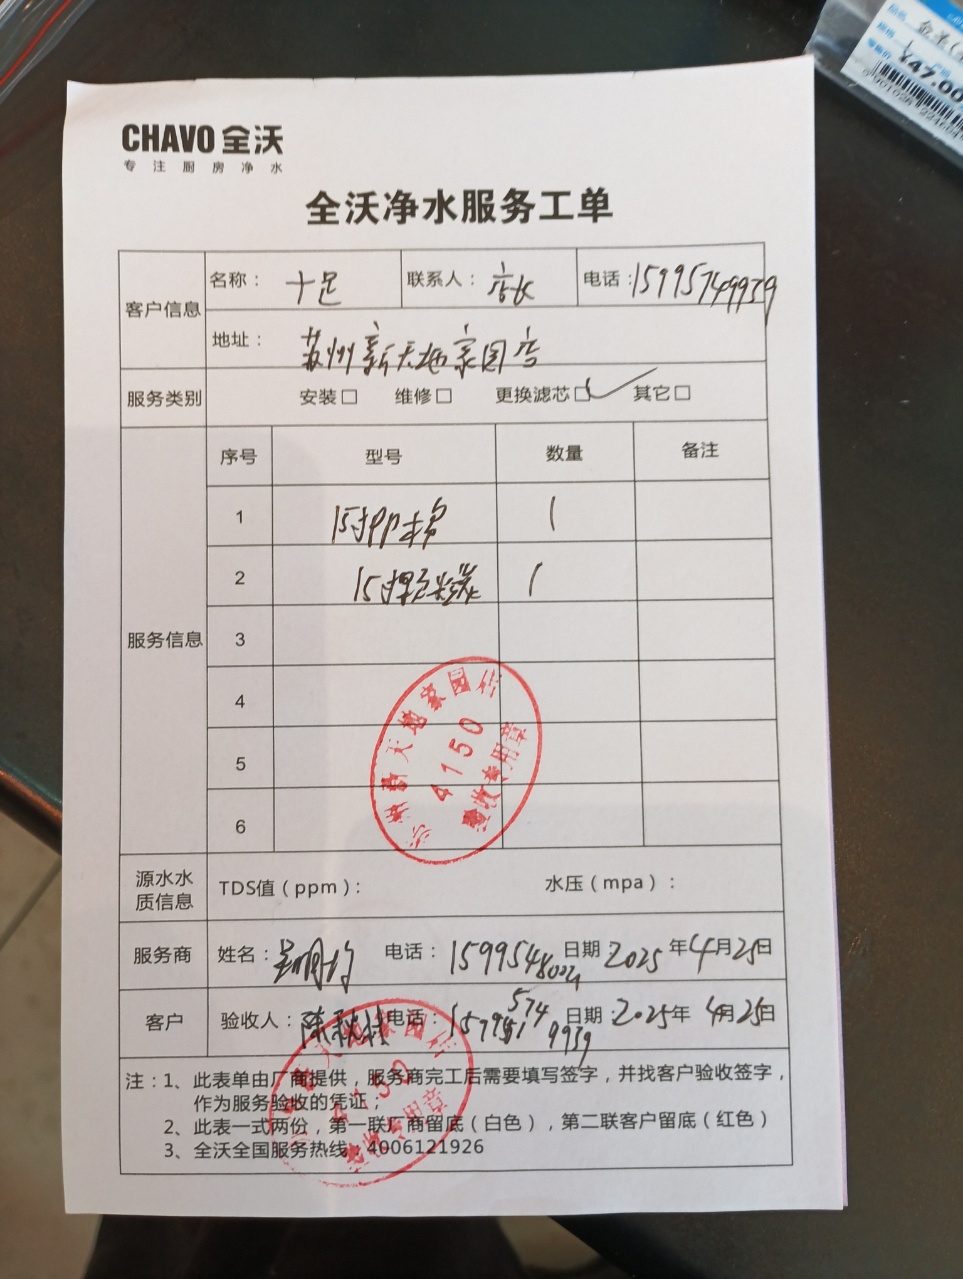 CHAVO 全沃
专注厨房净水
全沃净水服务工单
客户信息 名称： 十足 联系人： 店长 电话：15995749939
地址： 苏州新天地家园店
服务类别 安装□ 维修□ 更换滤芯□✓ 其它□
服务信息 序号 型号 数量 备注
1 15寸PP棉 1
2 15寸颗粒炭 1
3
4
5
6
苏州新天地家园店
4150
验收专用章
源水水质信息 TDS值（ppm）： 水压（mpa）：
服务商 姓名： 电话： 日期 2025年4月25日
客户 验收人：陈秋桂 电话： 574 9939 日期：2025年4月25日
注：1、此表单由厂商提供，服务商完工后需要填写签字，并找客户验收签字，
作为服务验收的凭证；
2、此表一式两份，第一联厂商留底（白色），第二联客户留底（红色）
3、全沃全国服务热线：4006121926
4150
验收专用章
¥47.00